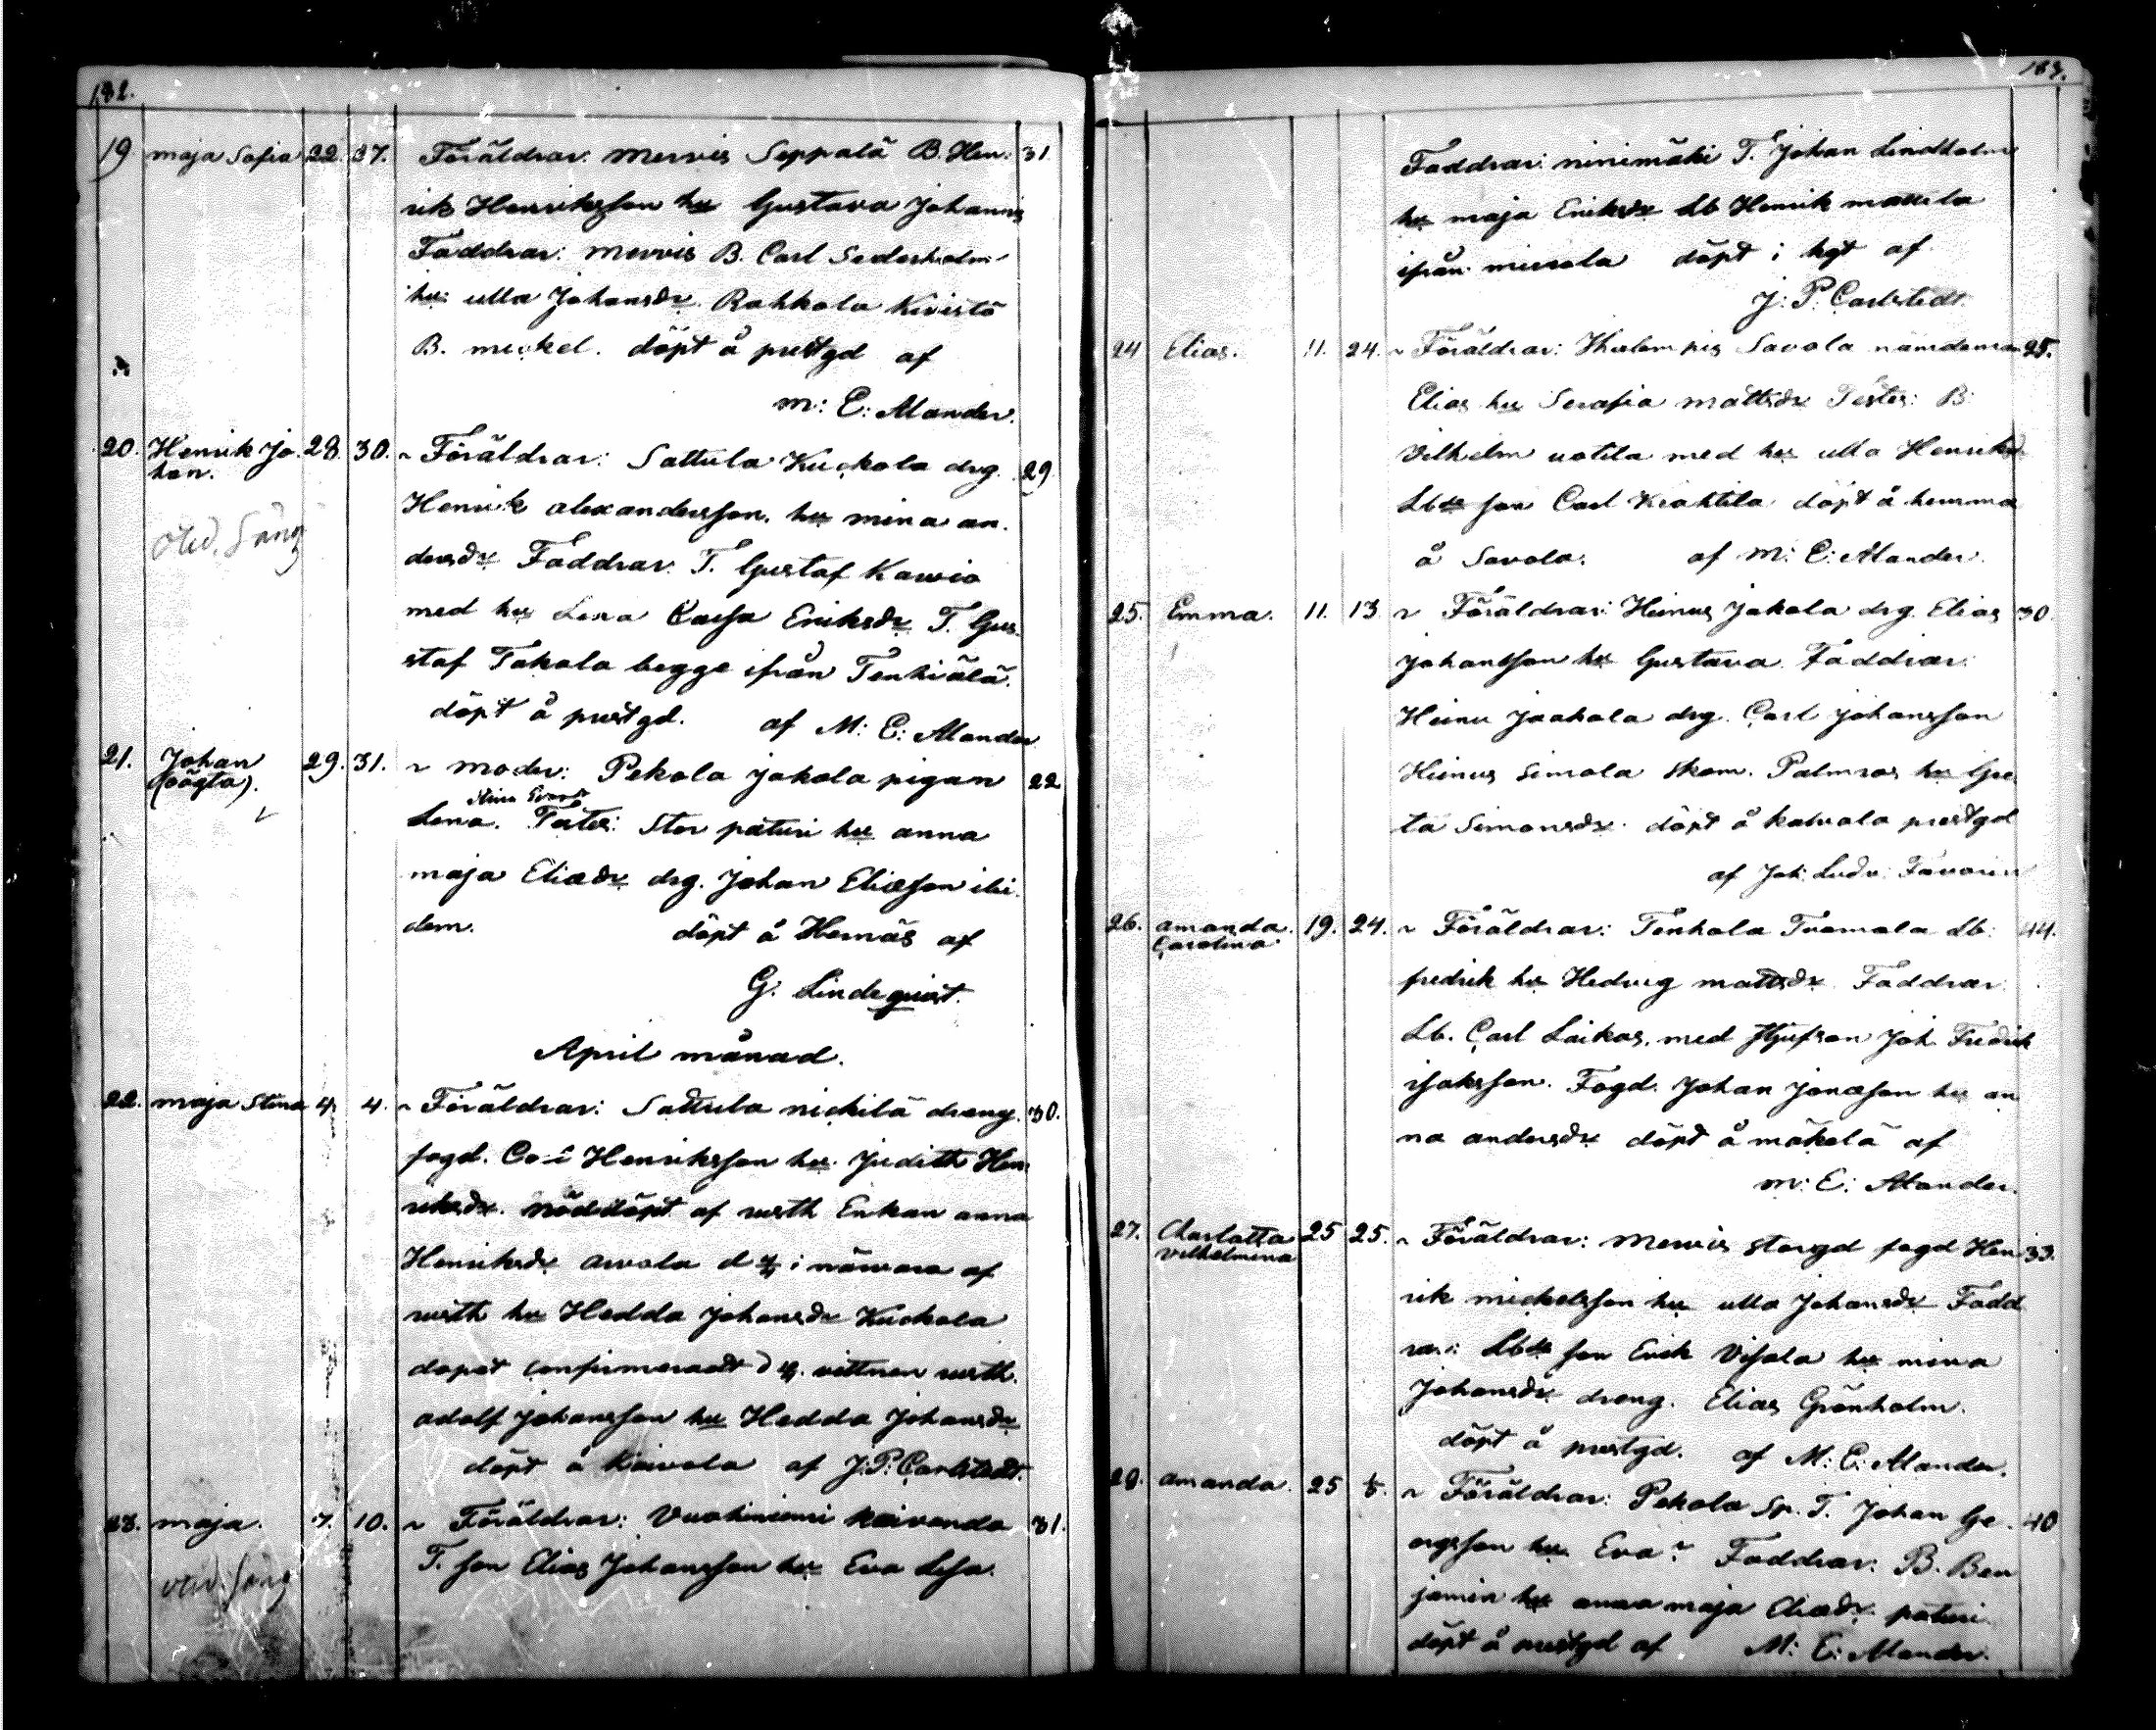 182.
19. maja Sofia 22. 27. Föräldrar: Mervis Seppälä B. Hen= 31.
rik Henriksson hu Gustava Johannis
Faddrar: Mervis B. Carl Sederholm
hu: ulla Johansdr. Rahkola Kivistö
B. mickel. döpt å prestgd af
M: E: Alander.
20. Henrik Jo= 28. 30. Föräldrar: Sattula Kuckola drg. 29.
han.
Henrik alexandersson. hu mina an=
dersdr Faddrar: T. Gustaf Kawio
med hu Lena Caisa Eriksdr T. Gus=
staf Takala begge ifrån Tenhiälä.
döpt å prestgd. af M: E: Alander
21. Johan 29. 31. moder: Pekola jakola pigan 22
(oägta).
Lena. Testes: Stor paturi hu anna
maja Eliædr drg. Johan Eliæson ibi=
dem. döpt å Hernäs af
G: Lindeqvist.
April månad.
22. maja Stina 4. 4. Föräldrar: Sattula nickilä dreng. 30.
fogd. Henriksson hu. Judith Hen=
riksdr. nöddöpt af Enkan anna
Henriksdr arvola d i närvara af
hu Hedda Johansdr Kuckola
dopet confirmeradt d vittnen
adolf Johansson hu Hedda Johansdr
döpt å Kaivola af J.P. Carlstedt.
23. maja. 7. 10. Föräldrar: Vuohiniemi 31.
T. son Elias Johansson hu Eva Lisa.
183.
Faddrar: ninimäki T. Johan Lindholm
hu maja Eriksdr Lb Henrik mattila
ifrån döpt i hgt af
J: P. Carlstedt.
24 Elias. 11. 24. Föräldrar: Savola nämdeman 25.
Elias hu Serafia mattsdr Testes: B:
Vilhelm uotila med hu ulla Henriksd
son Carl döpt å hemma
å Savola. af M: E: Alander.
25. Emma. 11. 13 Föräldrar: Heinus Jakola drg. Elias 30
Johansson hu Gustava Faddrar:
Heinu Jaakola drg. Carl Johansson
Heinus Simola skom. Palmros hu Gre=
ta Simonsdr. döpt å kalvala prestgd
af Joh: Ludv: Favorin
26. amanda 19. 24. Föräldrar: Tenhola Tuomala Lb: 44.
Carolina.
fredrik hu Hedvig mattsdr Faddrar:
Lb. Carl Laikas. med Joh Fredrik
isaksson. Fogd. Johan Jonæson hu an
na andersdr döpt å mäkelä af
M: E: Alander.
27. Charlatta 25 25. Föräldrar: Mervis storgd fogd Hen= 33.
Vilhelmina
rik mickelsson hu ulla Johansdr Fadd
rar: son Erik Visala hu mina
Johansdr dreng. Elias Grönholm.
döpt å prestgd. af M: E: Alander.
28. amanda. 25 Föräldrar: Pekola Sp. T. Johan Ge= 40
orgsson hu Eva Faddrar: B. Ben
jamin hu anna maja Eliædr. paturi
döpt å prestgd af M: E: Alander.